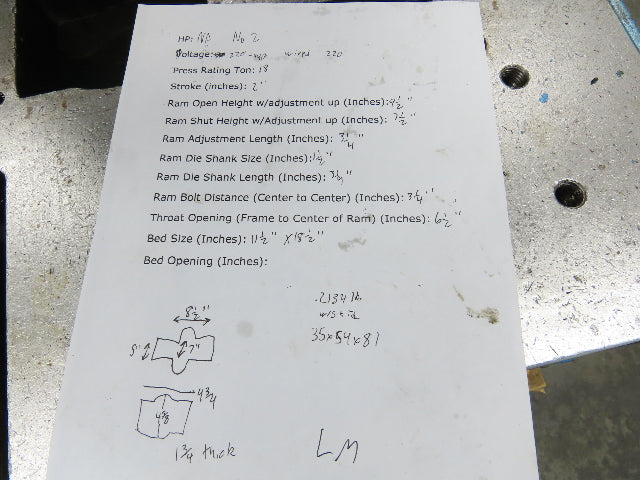 HP: NA No 2
Voltage: 220-440 wired 220
Press Rating Ton: 18
Stroke (inches): 2"
Ram Open Height w/adjustment up (Inches): 9 1/2"
Ram Shut Height w/Adjustment up (Inches): 7 1/2"
Ram Adjustment Length (Inches): 3 1/4"
Ram Die Shank Size (Inches): 1 1/2"
Ram Die Shank Length (Inches): "
Ram Bolt Distance (Center to Center) (Inches): 3 1/4"
Throat Opening (Frame to Center of Ram) (Inches): 6 1/2"
Bed Size (Inches): 11 1/2" X 18 1/2"
Bed Opening (Inches):
8 1/2"
2134 lb
w/skid
5" 7"
35x54x81
4 3/4
4 3/8
1 3/4 thick
LM